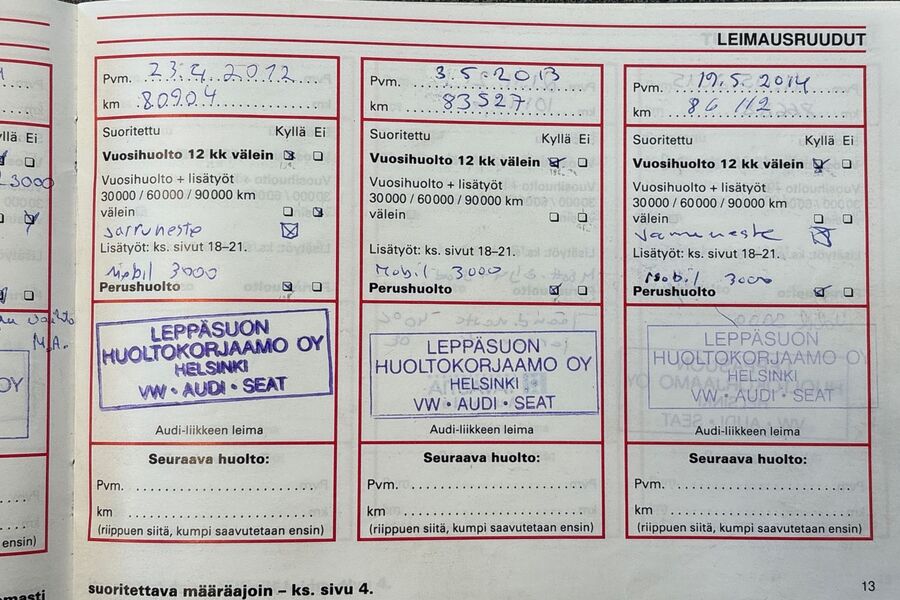 LEIMAUSRUUDUT
Pvm. 23.4.2012
km 80904
Suoritettu Kyllä Ei
Vuosihuolto 12 kk välein
Vuosihuolto + lisätyöt
30 000 / 60 000 / 90 000 km
välein
jarruneste
Lisätyöt: ks. sivut 18–21.
Mobil 3000
Perushuolto
LEPPÄSUON
HUOLTOKORJAAMO OY
HELSINKI
VW • AUDI • SEAT
Audi-liikkeen leima
Seuraava huolto:
Pvm.
km
(riippuen siitä, kumpi saavutetaan ensin)
Pvm. 3.5.2013
km 83527
Suoritettu Kyllä Ei
Vuosihuolto 12 kk välein
Vuosihuolto + lisätyöt
30 000 / 60 000 / 90 000 km
välein
Lisätyöt: ks. sivut 18–21.
Mobil 3000
Perushuolto
LEPPÄSUON
HUOLTOKORJAAMO OY
HELSINKI
VW • AUDI • SEAT
Audi-liikkeen leima
Seuraava huolto:
Pvm.
km
(riippuen siitä, kumpi saavutetaan ensin)
Pvm. 19.5.2014
km 86 112
Suoritettu Kyllä Ei
Vuosihuolto 12 kk välein
Vuosihuolto + lisätyöt
30 000 / 60 000 / 90 000 km
välein
jarruneste
Lisätyöt: ks. sivut 18–21.
Mobil 3000
Perushuolto
LEPPÄSUON
HUOLTOKORJAAMO OY
HELSINKI
VW • AUDI • SEAT
Audi-liikkeen leima
Seuraava huolto:
Pvm.
km
(riippuen siitä, kumpi saavutetaan ensin)
suoritettava määräajoin – ks. sivu 4.
13